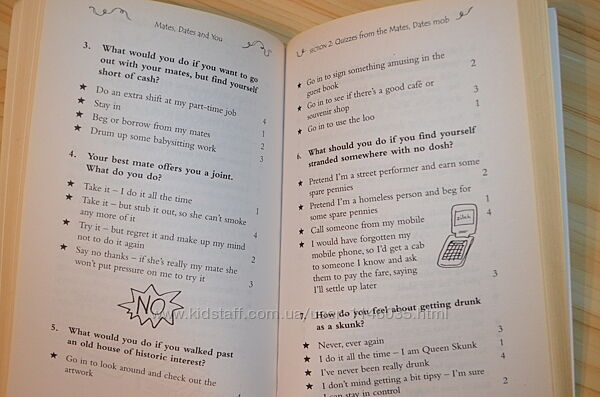 Mates, Dates and You
3. What would you do if you want to go
out with your mates, but find yourself
short of cash?
★ Do an extra shift at my part-time job 4
★ Stay in 1
★ Beg or borrow from my mates 2
★ Drum up some babysitting work 3
4. Your best mate offers you a joint.
What do you do?
★ Take it – I do it all the time 1
★ Take it – but stub it out, so she can't smoke
any more of it 4
★ Try it – but regret it and make up my mind
not to do it again 2
★ Say no thanks – if she's really my mate she
won't put pressure on me to try it 3
NO
5. What would you do if you walked past
an old house of historic interest?
★ Go in to look around and check out the
artwork
SECTION 2: Quizzes from the Mates, Dates mob
★ Go in to sign something amusing in the
guest book 2
★ Go in to see if there's a good café or
souvenir shop 3
★ Go in to use the loo 1
6. What should you do if you find yourself
stranded somewhere with no dosh?
★ Pretend I'm a street performer and earn some
spare pennies 2
★ Pretend I'm a homeless person and beg for
some spare pennies 1
★ Call someone from my mobile 4
★ I would have forgotten my
mobile phone, so I'd get a cab
to someone I know and ask
them to pay the fare, saying
I'll settle up later 3
7. How do you feel about getting drunk
as a skunk?
★ Never, ever again 3
★ I do it all the time – I am Queen Skunk 1
★ I've never been really drunk 4
★ I don't mind getting a bit tipsy – I'm sure
I can stay in control 2